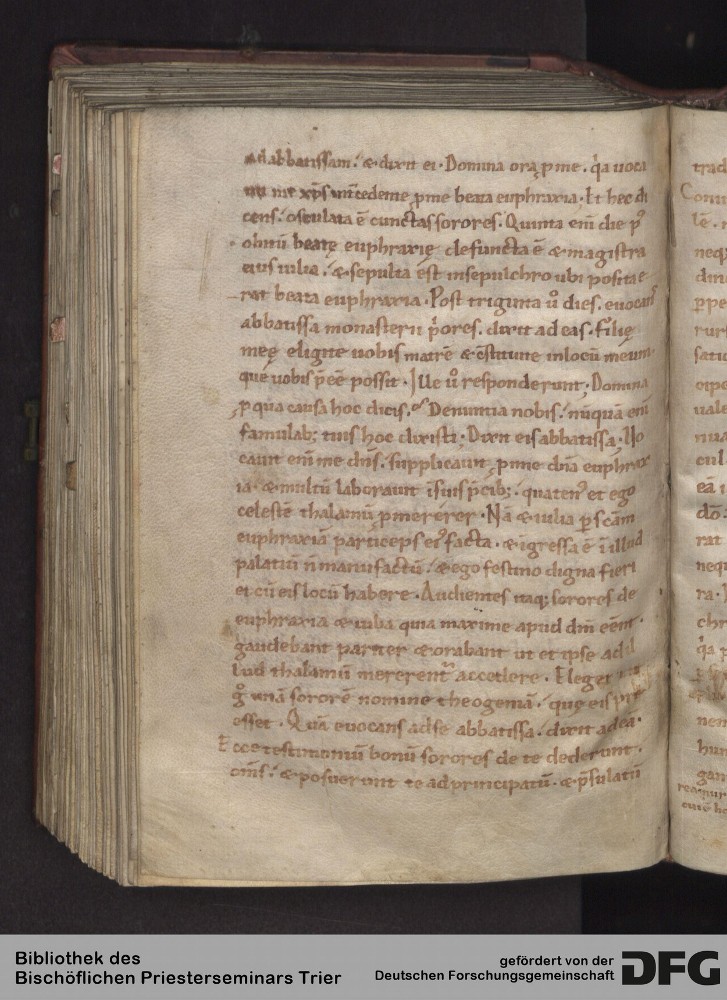 ad abbatissam. & dixit ei. Domina ora p me. q̇a uoca
me xp̄s int̄cedente p me beata euphraxia. Et hec di
cens. osculata ē cunctas sorores. Quinta eni die p᷒
obitū beatę euphraxię defuncta ē & magistra
eius iulia. & sepulta est insepulchro ubi posita e
rat beata euphraxia. Post triginta ů dies. euocans
abbatissa monasterii p̄ores. dixit ad eas. Filię
meę eligite uobis matrē & cōstituite inlocū meum.
quę uobis p̄eē possit. Ille ů responderunt; Domina
p qua causa hoc dicis. Denuntia nobis. nūquā eni
famulab; tuis hoc dixisti. Dixit eis abbatissa. Uo
cauit eni me dn̄s. supplicauit p me dn̄a euphrax
ia. & multū laborauit ī suis p̄cib;. quaten᷒ et ego
celestē thalamū pmererer. Nā & iulia p scām
euphraxiā particeps ei᷒ facta. & īgressa ē ī illud
palatiū n̄ manufactū. & ego festino digna fieri
et cū eis locū habere. Audientes itaq; sorores de
euphraxia & iulia quia maxime apud dm̄ eēnt.
gaudebant pariter & orabant ut et ipse ad il
lud thalamū mererent᷑ accedere. Eleger
g̊ unā sororē nomine theogeniā. quę eis
esset. Quā euocans ad se abbatissa. dixit ad ea.
Ecce testimoniū bonū sorores de te dederunt.
om̄s. & posuerunt te ad principatū. & p̄sulatū
trad
neq
rat
neq
ra.
chr
hun
gan
Bibliothek des
Bischöflichen Priesterseminars Trier
gefördert von der
Deutschen Forschungsgemeinschaft
DFG